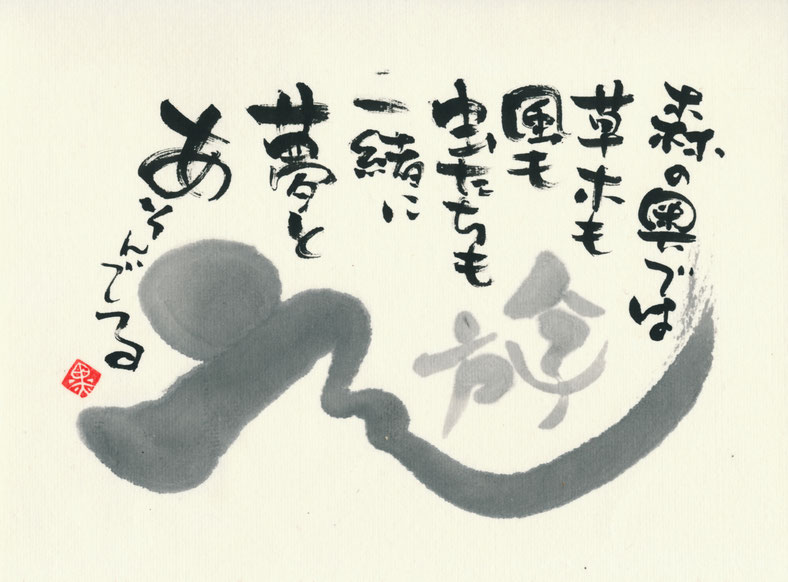 森の奥では
草木も
風も
虫たちも
一緒に
夢と
あそんでる
遊
果